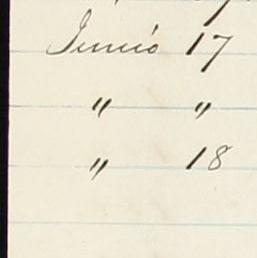 Junio 17
" "
" 18